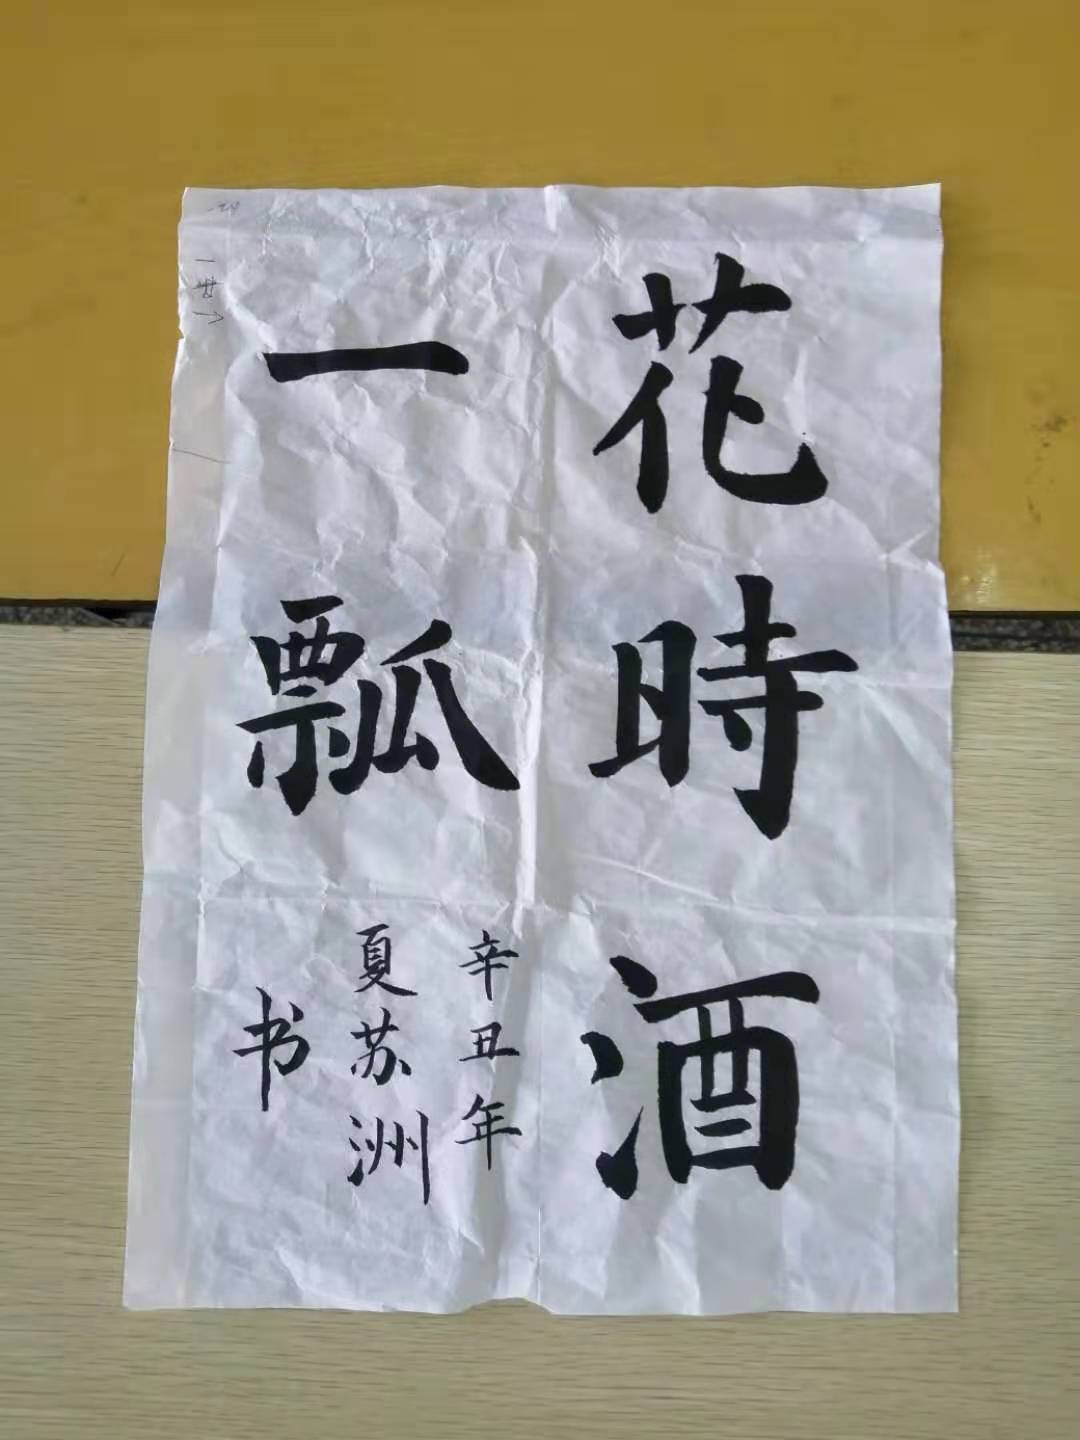 花時酒
一瓢
辛丑年
夏苏洲
书